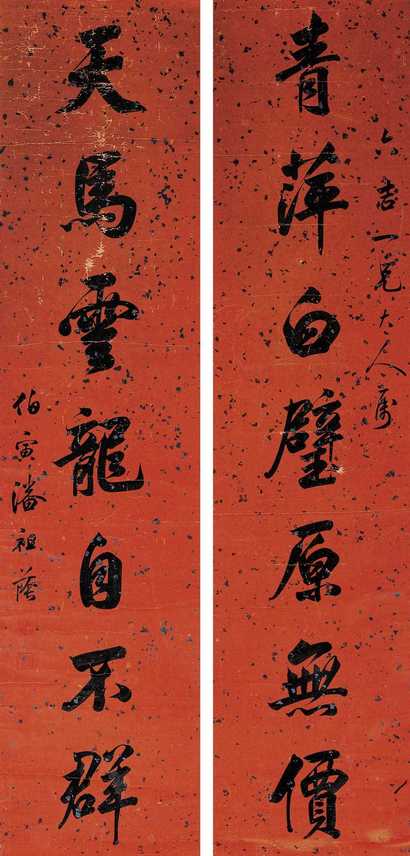 六吉一兄大人屬
青萍白璧原無價
天馬雲龍自不群
伯寅潘祖蔭